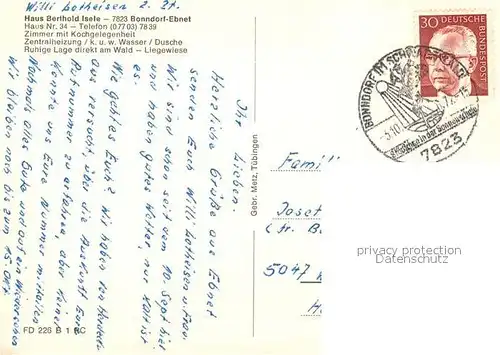 Willi Lotheisen z. Zt.
Haus Berthold Isele — 7823 Bonndorf-Ebnet
Haus Nr. 34 — Telefon (0 77 03) 78 39
Zimmer mit Kochgelegenheit
Zentralheizung / k. u. w. Wasser / Dusche
Ruhige Lage direkt am Wald — Liegewiese
Ihr Lieben.
Herzliche Grüße aus Ebnet
senden Euch Willi Lotheisen u. Frau.
Wir sind schon seit dem 10. Sept hier
und haben gutes Wetter, nur kalt ist
Wie geht es Euch? Wir haben von
aus versucht, über die Auskunft Eure
Rufnummer zu erfahren, aber keiner
konnte uns Eure Nummer mitteilen
Nochmals alles Gute und auf ein Wiedersehen
Wir bleiben noch bis zum 15. Okt.
FD 226 B 1 RC
Gebr. Metz, Tübingen
30 DEUTSCHE BUNDESPOST
BONNDORF IM SCHWARZWALD
7823
Famil
Josef
(fr. B
5047
privacy protection
DELCAMPE.NET